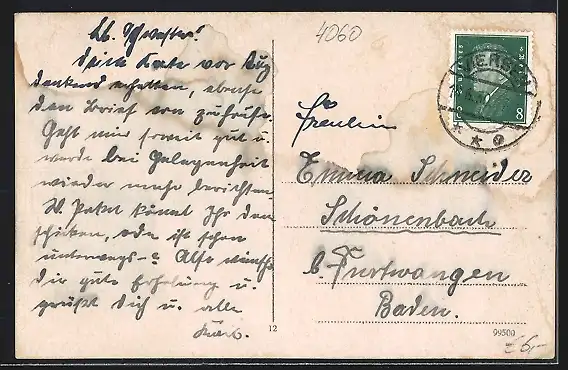 Lb. Schwester!
Deine Karte vor Aug
dankend erhalten, ebenso
den Brief von zuhause.
Geht mir soweit gut u.
werde bei Gelegenheit
wieder mehr berichten.
Paket könnt Ihr den
schicken, oder ist schon
unterwegs-? Also wünsche
dir gute Erholung u.
grüßt Dich u. alle
4060
8
Fräulein
Emma Schneider
Schönenbach
b. Furtwangen
Baden.
12
99500